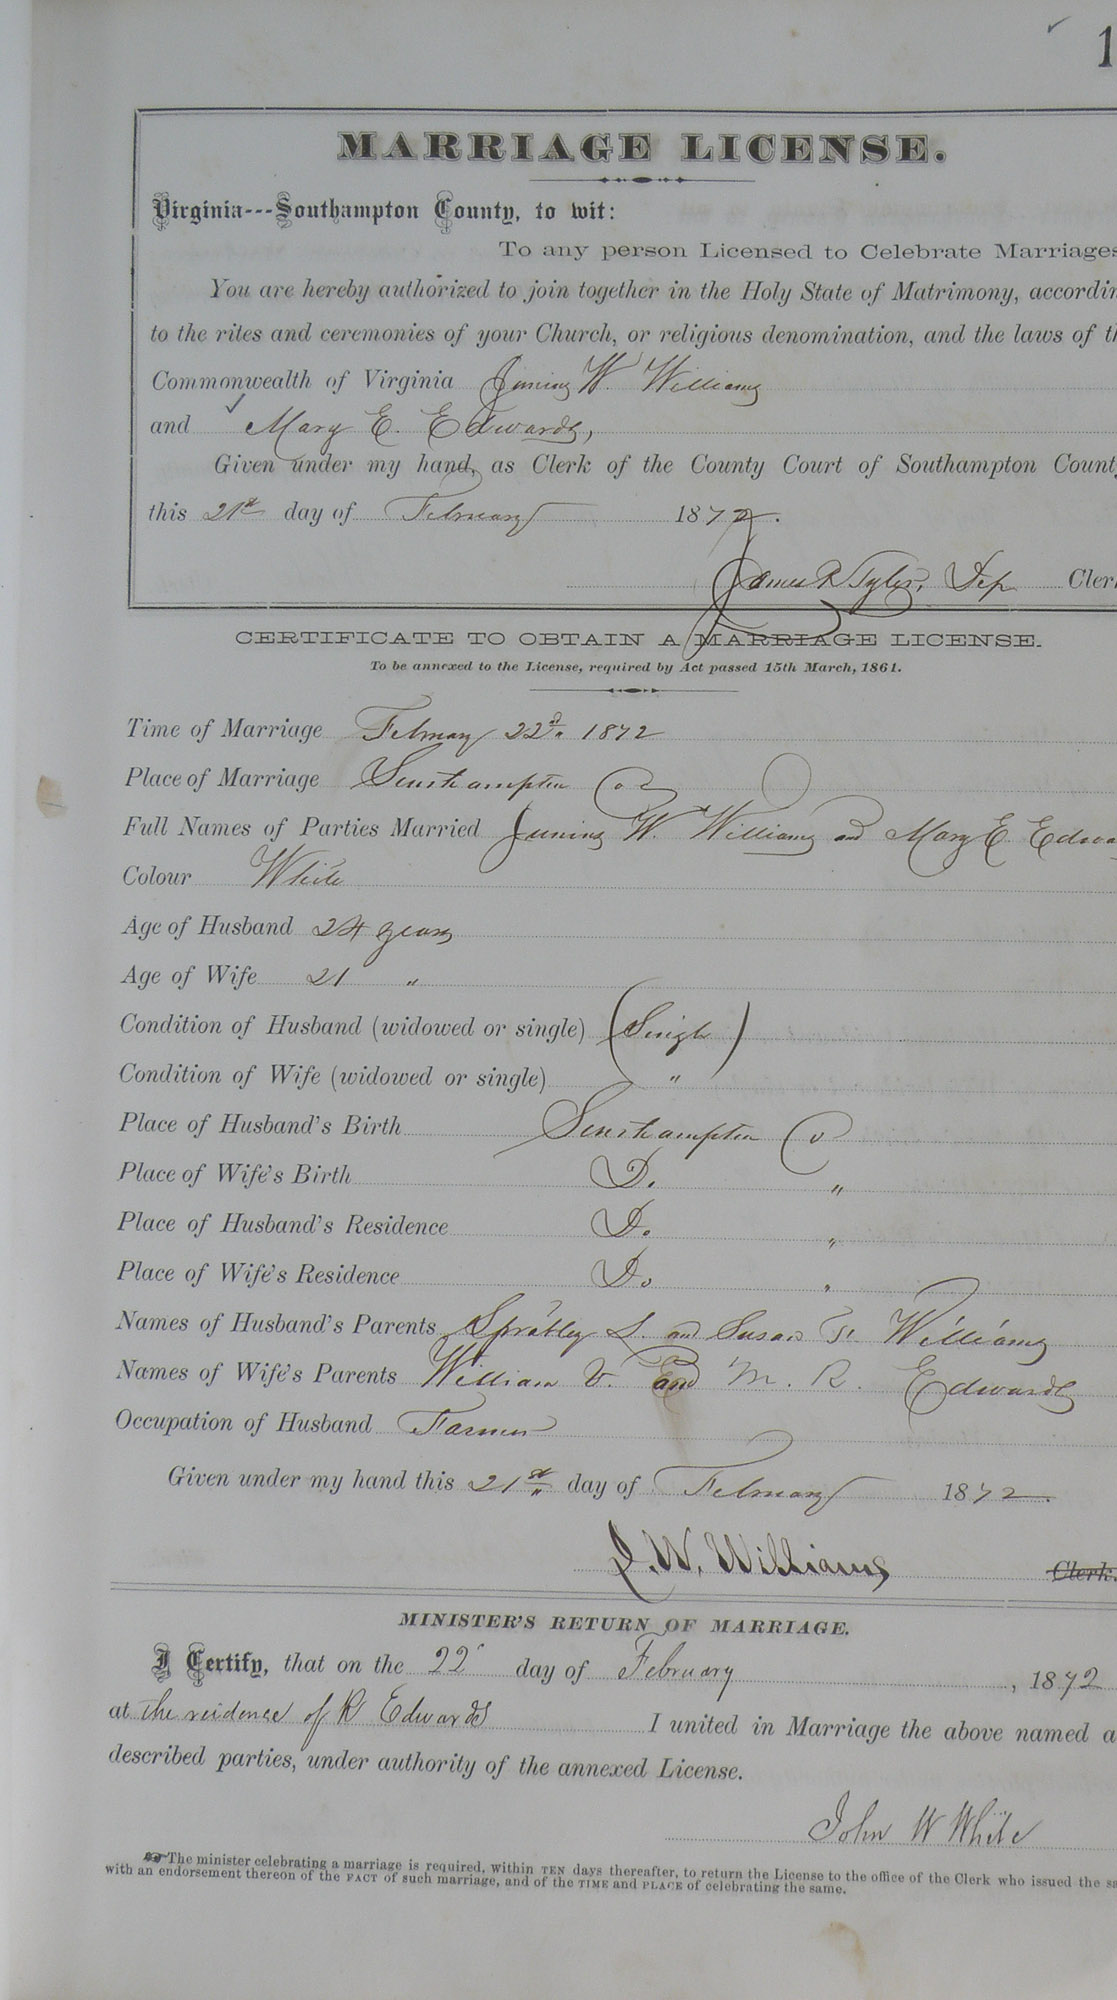 1
MARRIAGE LICENSE.
Virginia---Southampton County, to wit:
To any person Licensed to Celebrate Marriages
You are hereby authorized to join together in the Holy State of Matrimony, accordin
to the rites and ceremonies of your Church, or religious denomination, and the laws of th
Commonwealth of Virginia Junius W. Williams
and Mary E. Edwards,
Given under my hand, as Clerk of the County Court of Southampton County
this 21st day of February 1872.
James R Tyler, Dep Clerk
CERTIFICATE TO OBTAIN A MARRIAGE LICENSE.
To be annexed to the License, required by Act passed 15th March, 1861.
Time of Marriage February 22d. 1872
Place of Marriage Southampton Co
Full Names of Parties Married Junius W. Williams and Mary E. Edwa
Colour White
Age of Husband 24 years
Age of Wife 21 "
Condition of Husband (widowed or single) (Single)
Condition of Wife (widowed or single) "
Place of Husband's Birth Southampton Co
Place of Wife's Birth Do "
Place of Husband's Residence Do "
Place of Wife's Residence Do "
Names of Husband's Parents Spratley L. and Susan T. Williams
Names of Wife's Parents William V. and M. R. Edwards
Occupation of Husband Farmer
Given under my hand this 21st day of February 1872.
J. W. Williams Clerk.
MINISTER'S RETURN OF MARRIAGE.
I Certify, that on the 22 day of February, 1872
at the reidence of R Edwards I united in Marriage the above named a
described parties, under authority of the annexed License.
John W White
The minister celebrating a marriage is required, within TEN days thereafter, to return the License to the office of the Clerk who issued the sa
with an endorsement thereon of the FACT of such marriage, and of the TIME and PLACE of celebrating the same.